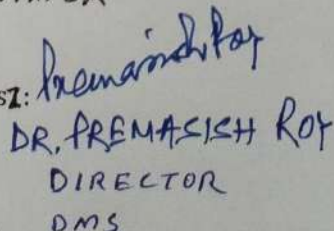 Premasish Roy
DR. PREMASISH ROY
DIRECTOR
DMS